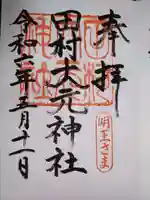 奉拝
明王さま
田村大元神社
令和二年五月十一日